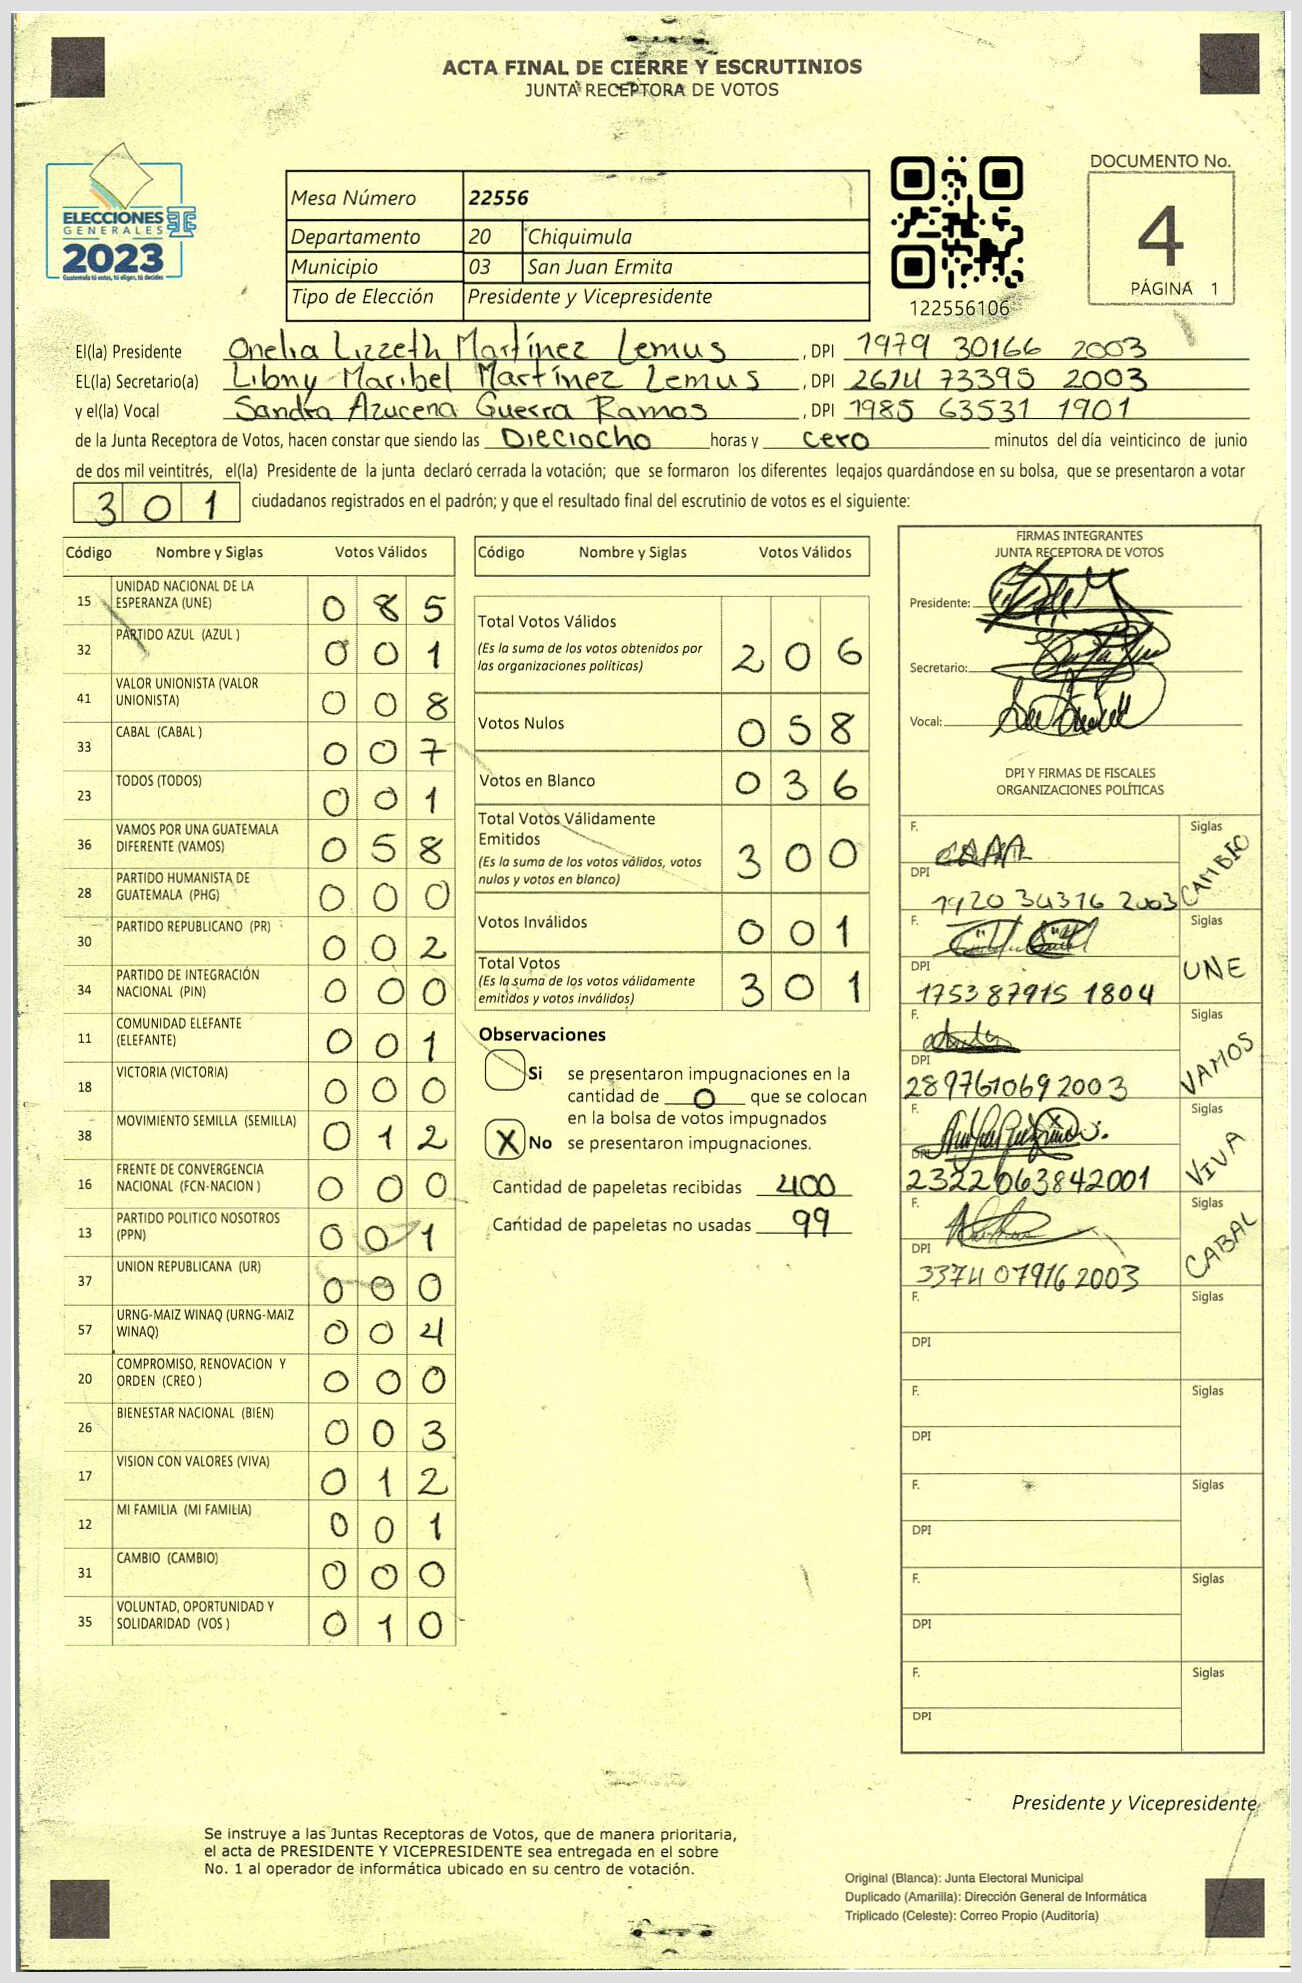 ACTA FINAL DE CIERRE Y ESCRUTINIOS
JUNTA RECEPTORA DE VOTOS
ELECCIONES
GENERALES
2023
Guatemala tú votas, tú eliges, tú decides
Mesa Número 22556
Departamento 20 Chiquimula
Municipio 03 San Juan Ermita
Tipo de Elección Presidente y Vicepresidente
122556106
DOCUMENTO No.
4
PÁGINA 1
El(la) Presidente Onelia Lizzeth Martínez Lemus, DPI 1979 30166 2003
EL(la) Secretario(a) Libny Maribel Martínez Lemus, DPI 2614 73395 2003
y el(la) Vocal Sandra Azucena Guerra Ramos, DPI 1985 63531 1901
de la Junta Receptora de Votos, hacen constar que siendo las Dieciocho horas y cero minutos del día veinticinco de junio
de dos mil veintitrés, el(la) Presidente de la junta declaró cerrada la votación; que se formaron los diferentes legajos quardándose en su bolsa, que se presentaron a votar
301 ciudadanos registrados en el padrón; y que el resultado final del escrutinio de votos es el siguiente:
Código Nombre y Siglas Votos Válidos
15 UNIDAD NACIONAL DE LA
ESPERANZA (UNE) 085
32 PARTIDO AZUL (AZUL ) 001
41 VALOR UNIONISTA (VALOR
UNIONISTA) 008
33 CABAL (CABAL ) 007
23 TODOS (TODOS) 001
36 VAMOS POR UNA GUATEMALA
DIFERENTE (VAMOS) 058
28 PARTIDO HUMANISTA DE
GUATEMALA (PHG) 000
30 PARTIDO REPUBLICANO (PR) 002
34 PARTIDO DE INTEGRACIÓN
NACIONAL (PIN) 000
11 COMUNIDAD ELEFANTE
(ELEFANTE) 001
18 VICTORIA (VICTORIA) 000
38 MOVIMIENTO SEMILLA (SEMILLA) 012
16 FRENTE DE CONVERGENCIA
NACIONAL (FCN-NACION ) 000
13 PARTIDO POLITICO NOSOTROS
(PPN) 001
37 UNION REPUBLICANA (UR) 000
57 URNG-MAIZ WINAQ (URNG-MAIZ
WINAQ) 004
20 COMPROMISO, RENOVACION Y
ORDEN (CREO ) 000
26 BIENESTAR NACIONAL (BIEN) 003
17 VISION CON VALORES (VIVA) 012
12 MI FAMILIA (MI FAMILIA) 001
31 CAMBIO (CAMBIO) 000
35 VOLUNTAD, OPORTUNIDAD Y
SOLIDARIDAD (VOS ) 010
Código Nombre y Siglas Votos Válidos
Total Votos Válidos
(Es la suma de los votos obtenidos por
las organizaciones políticas) 206
Votos Nulos 058
Votos en Blanco 036
Total Votos Válidamente
Emitidos
(Es la suma de los votos válidos, votos
nulos y votos en blanco) 300
Votos Inválidos 001
Total Votos
(Es la suma de los votos válidamente
emitidos y votos inválidos) 301
Observaciones
Si se presentaron impugnaciones en la
cantidad de 0 que se colocan
en la bolsa de votos impugnados
X No se presentaron impugnaciones.
Cantidad de papeletas recibidas 400
Cantidad de papeletas no usadas 99
FIRMAS INTEGRANTES
JUNTA RECEPTORA DE VOTOS
Presidente:
Secretario:
Vocal:
DPI Y FIRMAS DE FISCALES
ORGANIZACIONES POLÍTICAS
F. Siglas
DPI 1920 34316 2003 CAMBIO
F. Siglas
DPI 1753 87915 1804 UNE
F. Siglas
DPI 2897610692003 VAMOS
F. Siglas
DPI 2322063842001 VIVA
F. Siglas
DPI 3374 07916 2003 CABAL
F. Siglas
DPI
F. Siglas
DPI
F. Siglas
DPI
F. Siglas
DPI
F. Siglas
DPI
Presidente y Vicepresidente
Se instruye a las Juntas Receptoras de Votos, que de manera prioritaria,
el acta de PRESIDENTE Y VICEPRESIDENTE sea entregada en el sobre
No. 1 al operador de informática ubicado en su centro de votación.
Original (Blanca): Junta Electoral Municipal
Duplicado (Amarilla): Dirección General de Informática
Triplicado (Celeste): Correo Propio (Auditoría)